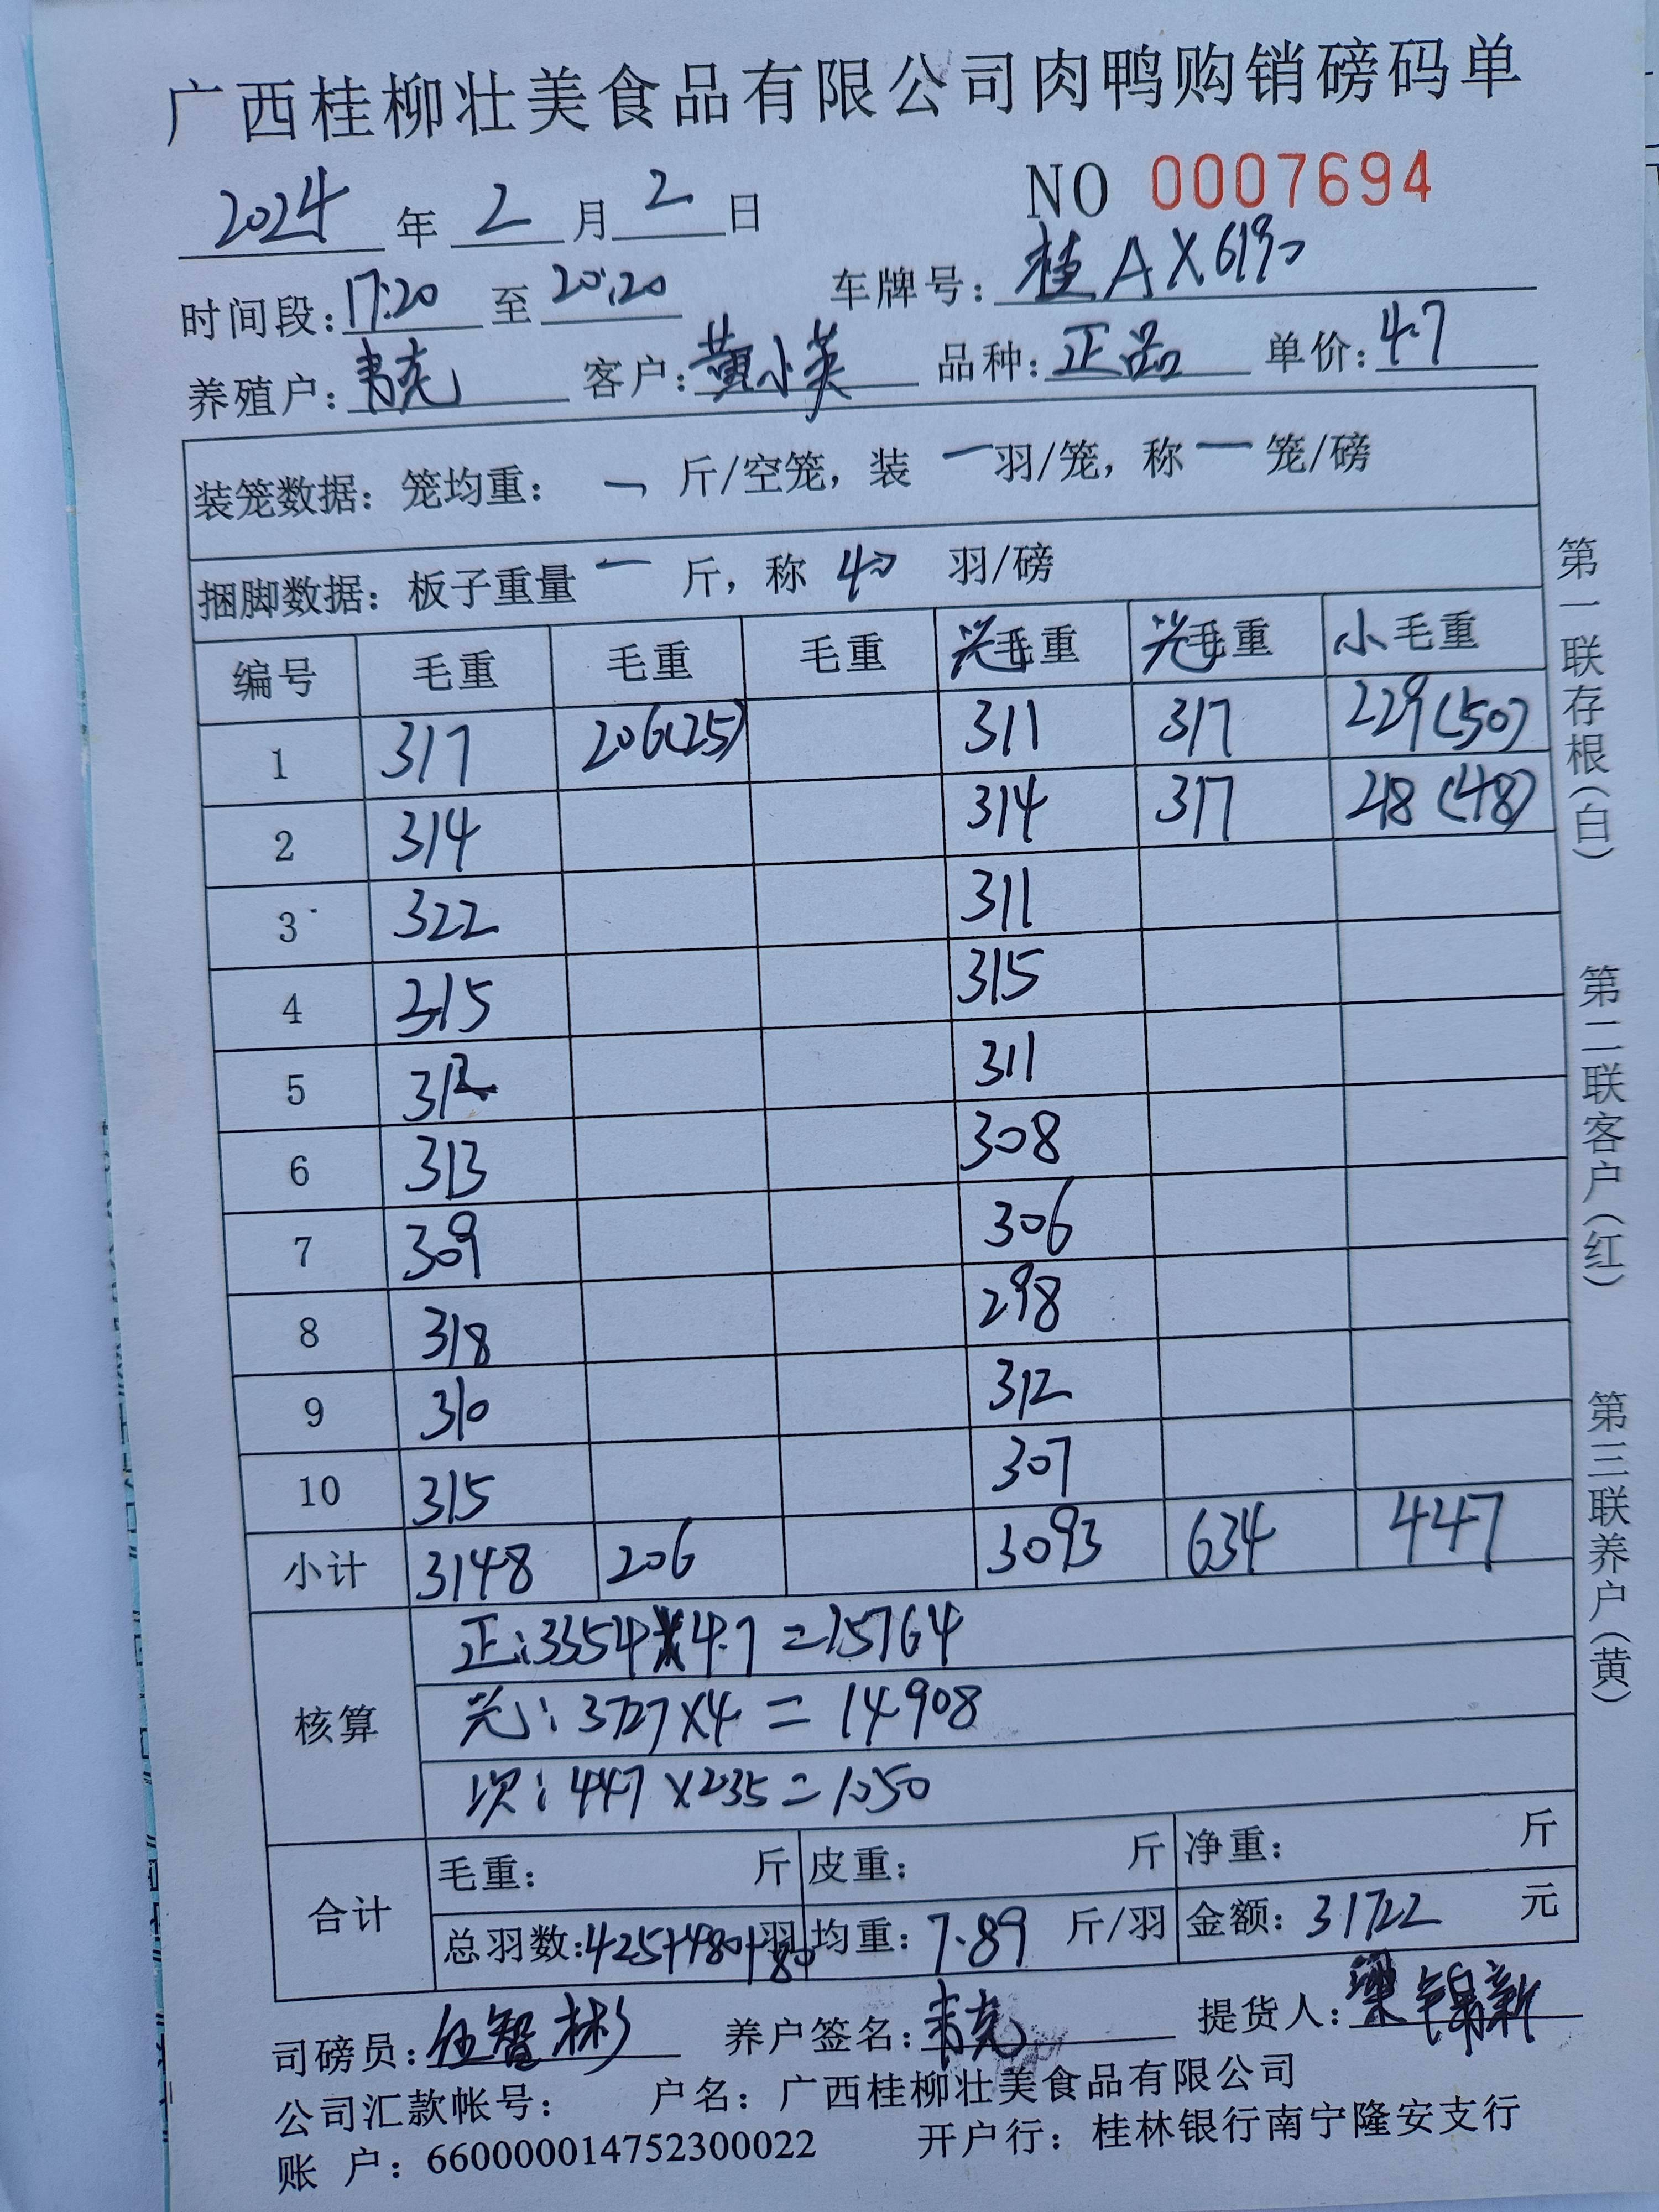 广西桂柳壮美食品有限公司肉鸭购销磅码单
NO 0007694
2024 年 2 月 2 日
时间段: 17:20 至 20:20 车牌号: 桂AX619
养殖户: 韦克 客户: 黄小英 品种: 正品 单价: 4.7
装笼数据: 笼均重: 一 斤/空笼, 装 一 羽/笼, 称 一 笼/磅
捆脚数据: 板子重量 一 斤, 称 40 羽/磅
编号 毛重 毛重 毛重 光毛重 光毛重 小毛重
1 317 206(25) 311 317 229(50)
2 314 314 317 218(48)
3 322 311
4 315 315
5 311
6 313 308
7 309 306
8 318 298
9 310 312
10 315 307
小计 3148 206 3093 634 447
核算
正: 3354×4.7=15764
光: 3727×4=14908
次: 447×2.35=1050
合计
毛重: 斤 皮重: 斤 净重: 斤
总羽数: 425+480+80 羽 均重: 7.89 斤/羽 金额: 31722 元
司磅员: 伍智彬 养户签名: 韦克 提货人: 梁锦新
公司汇款帐号: 户名: 广西桂柳壮美食品有限公司
账 户: 660000014752300022 开户行: 桂林银行南宁隆安支行
第一联存根(白) 第二联客户(红) 第三联养户(黄)